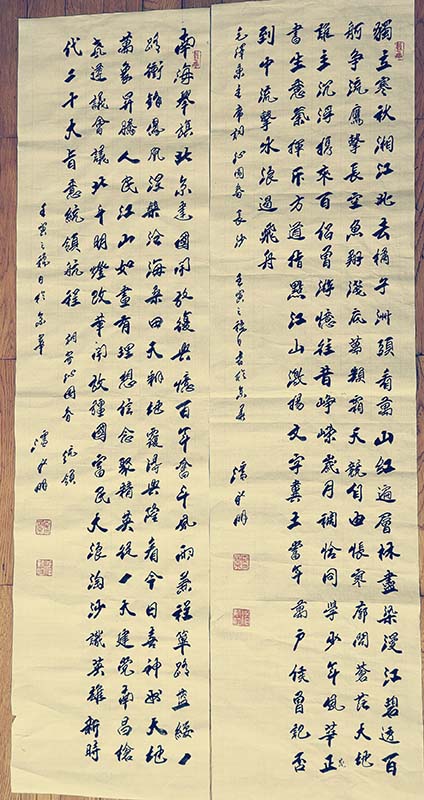 獨立寒秋湘江北去橘子洲頭看萬山紅遍層林盡染漫江碧透百
舸争流鷹擊長空魚翔淺底萬類霜天競自由悵寥廓問蒼茫大地
誰主沉浮携來百侣曾游憶往昔崢嶸歲月稠恰同學少年風華正
書生意氣揮斥方遒指點江山激揚文字糞土當年萬户侯曾記否
到中流擊水浪遏飛舟
毛澤東主席詞沁園春長沙 壬寅之秋月書於京華 潘永明
南海舉旗北京建國開放復興憶百年奮斗風雨兼程篳路藍縷一
路衝鋒鳳凰涅槃滄海桑田天翻地覆得興隆看今日喜神州大地
萬象昇騰人民江山如畫有理想信念聚精英統一天建黨南昌槍
聲遵議會議北斗明燈改革開放疆國富民大浪淘沙識英雄新時
代二十大旨意統領航程 沁園春 統領 潘永明
壬寅之秋月於京華